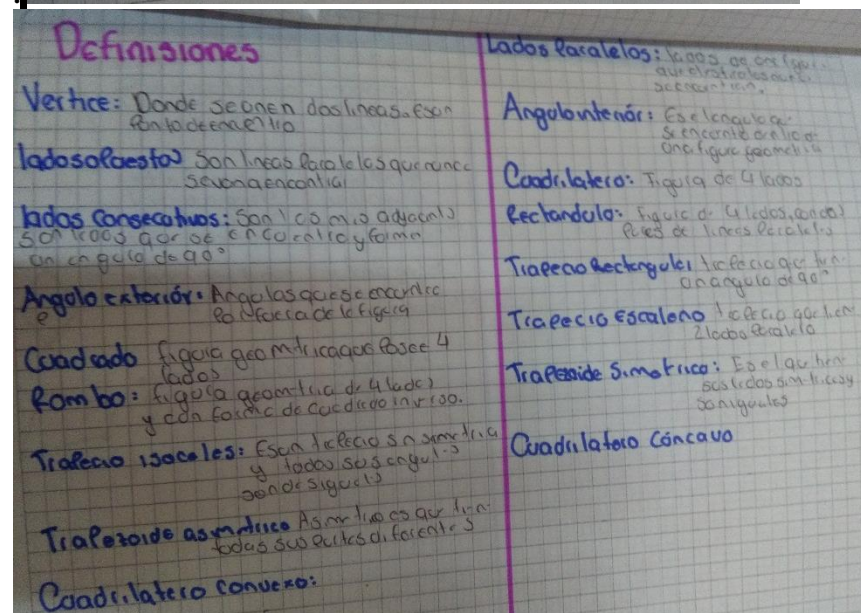 Definisiones
Vertice: Donde seunen doslineas. Esun
Puntodeencuentro
ladosopuestos Son lineas Paralelas quenunca
sevana encontrar
lados Consecutivos:
son lados que se encuentra y forma
un angulo de 90°
Angulo exterior: Angulos quese encuentra
Por fuera de la figura
Cuadrado figura geometricaque Posee 4
lados
Rombo: figura geometrica de 4 lados
y con forma de cuadrado
Trapecio isoceles: Es un trapecio
y todos sus angulos
Trapezoide asimetrico
todas sus partes diferentes
Cuadrilatero convexo:
Lados Paralelos:
Angulo interior: Es el angulo que
Se encuentra
una figura geometrica
Cuadrilatero: Figura de 4 lados
Rectandulo: Figura de 4 lados, con dos
Pares de lineas Paralelas
Trapecio Rectangular trapecio que tiene
un angulo de 90°
Trapecio Escaleno trapecio que tiene
2 lados Paralelo
Trapezoide Simetrico: Es el que tiene
sus lados simetricos y
son iguales
Cuadrilatero Cóncavo